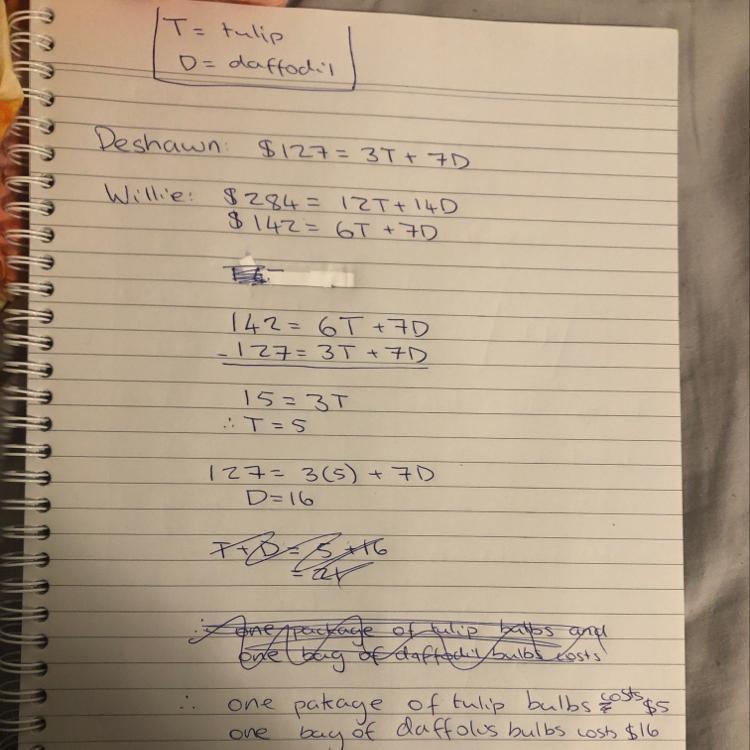 T = tulip
D = daffodil
Deshawn: $127 = 3T + 7D
Willie: $284 = 12T + 14D
$142 = 6T + 7D
142 = 6T + 7D
- 127 = 3T + 7D
15 = 3T
∴ T = 5
127 = 3(5) + 7D
D = 16
T + D = 5 + 16
= 21
∴ one package of tulip bulbs and
one bag of daffodil bulbs costs
∴ one patage of tulip bulbs costs $5
one bag of daffolus bulbs costs $16